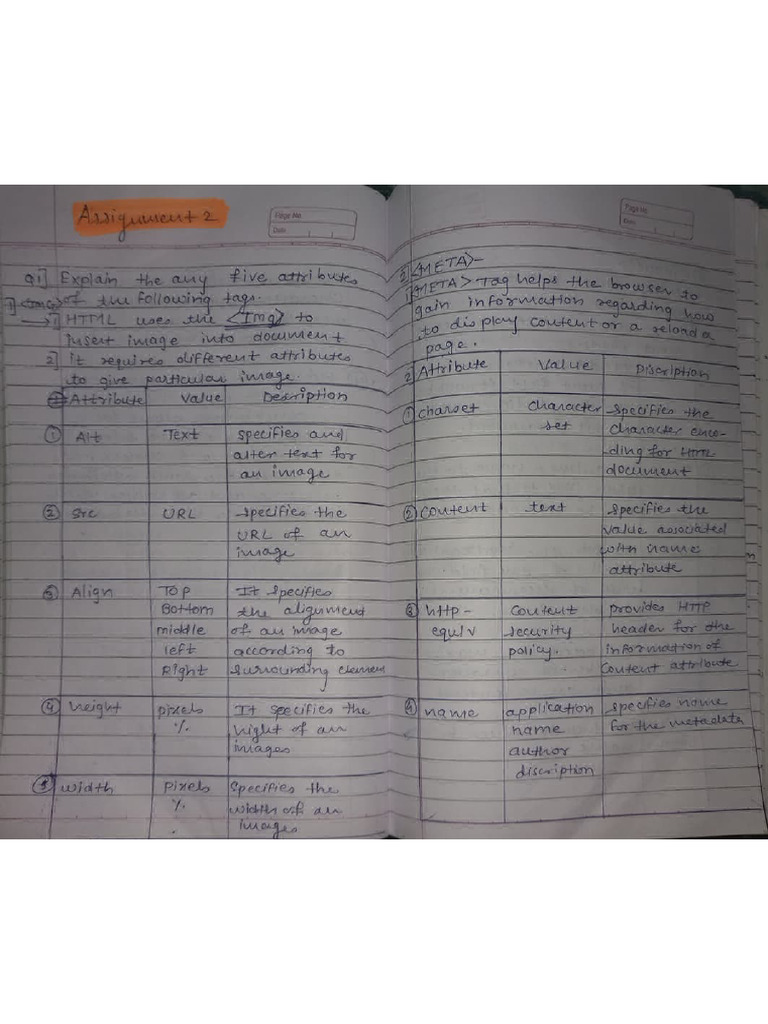 Assignment 2
Page No.
Date
Q1] Explain the any five attributes
of the following tags.
1] <Img>
→ 1] HTML uses the <Img> to
insert image into document
2] it requires different attributes
to give particular image.
Attribute Value Description
① Alt Text specifies and
alter text for
an image
② Src URL specifies the
URL of an
image
③ Align TOP It specifies
Bottom the alignment
middle of an image
left according to
Right surrounding element
④ height pixels It specifies the
% hight of an
images
⑤ width pixels specifies the
% width of an
images
Page No.
Date
2] <META>-
1] <META> Tag helps the browser to
gain information regarding how
to display content or a reload a
page.
2] Attribute Value Discription
① charset character specifies the
set character enco-
ding for HTML
document
② content text specifies the
value associated
with name
attribute
③ http- content provides HTTP
equiv security header for the
policy. information of
content attribute
④ name application specifies name
name for the metadata
author
discription